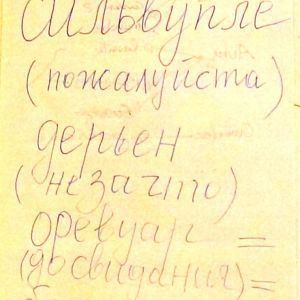 сильвупле
(пожалуйста)
дерьен
(незачто)
оревуар =
(досвидания) =